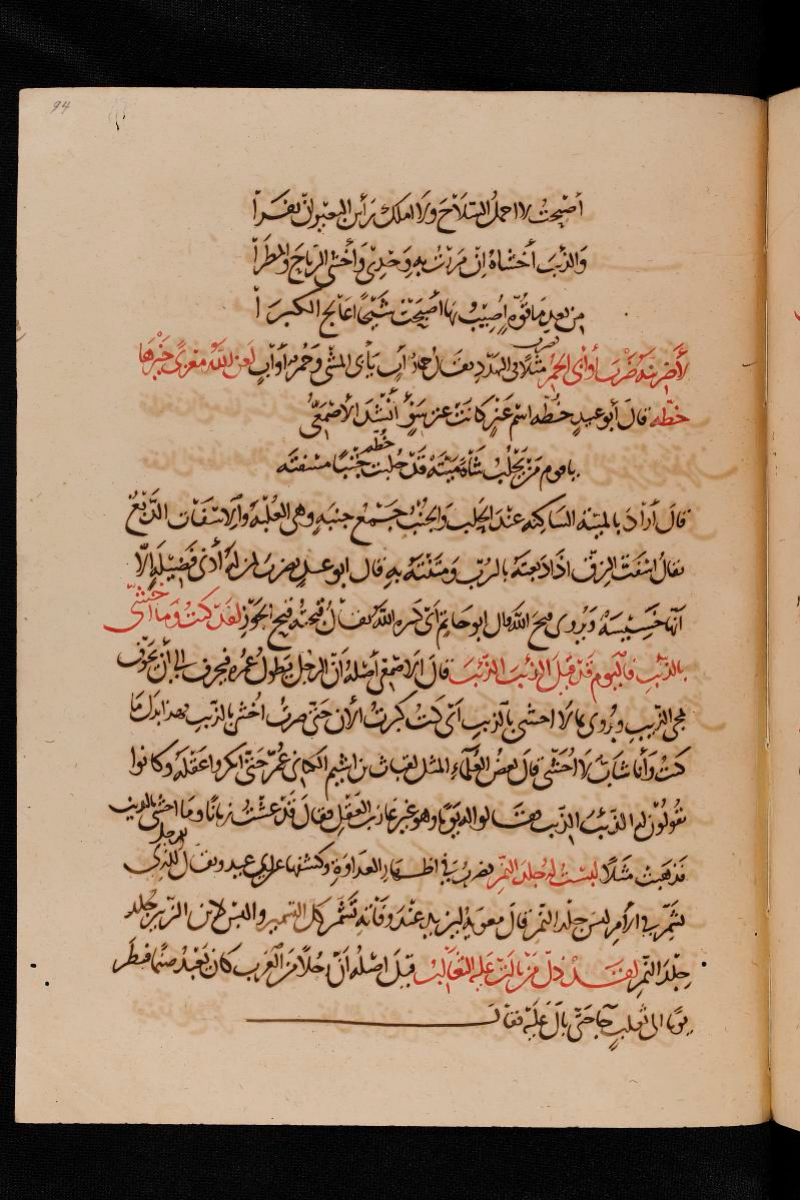 94
أصبحتُ لا احملُ السّلاحَ ولَا املك رَأسَ البعير إن نفرَا
وَالذّئبَ أخشاهُ إن مرَرتُ بهِ وَحْدِى وَأخشى الرّياحَ والمطَرَا
من بعدِ مَا قوّةٍ أصِيبُ بهَا أصبَحتُ شَيخًا اعَالج الكبرَا
لأضربنه ضَربَ أوابى الحمُر يضرب مثلًا فى التهدّد يقال حمارٌ آبٍ يأبى المشى وَحُمر أوَابٍ لعَن اللّهُ معزى خَيْرها
خطّه قالَ أبو عبيدٍ خُطّه اسْم عَنزٍ كانَتْ عنز سَوْءٍ أنْشدَ الأصْمَعىُّ
ياقوم مَن يَحلُبُ شَاةً مَيْتَهْ قَدْ حُلبَت خُطّه جَنْبًا مسْفتَه
قالَ أرَادَ بالمَيتة السَاكنه عندَ الحَلب وَالجُنُبُ جَمْعُ جنبَهٍ وهى العُلبَهُ وَالاسْفَات الدَّبْغُ
يقَالُ اسْفَتُّ الزِقّ اذَا دَبَغتهُ بالرُبّ وَمَتَنْتهُ بهِ قال ابو عبيدٍ يضرَبُ لمن لهُ أدنى فَضِيلَةٍ إلّا
أنّهَا خَسِيسَهٌ وَيُروى قبحَ اللّه قال ابو حَاتمٍ اىْ كسره اللّهُ يُقَالُ قَبَحْتُه قبيح الجَوْز لقدْ كنتُ وَمَا أخَشّى
بالذّئبِ فاليَومَ قدْ قيلَ الذّئبَ الذّئبَ قالَ الأصْمَعى أصْلهُ انّ الرجُل يَطولُ عُمره فيخرف إلى أن يخوّف
بمجى الذّيب ويُروى بما لَا اخشى بالذّيبِ اىْ كنتُ كبرتُ الآن حَتى صرتُ أخشّى بالذّيب فهذا بَدَل مَا
كنتُ وَأنا شابٌّ لَا أُخَشّى قالَ بعضُ العُلماءِ المثل لقباث بن اشيم الكنانى عُمّرَ حَتّى انكروا عقلَهُ وكانوا
يقُولُونَ لهُ الذّئبَ الذّيب فقالوا له يَومًا وهو غير غائب العَقلِ فقالَ قدْ عشتُ زمانًا وَمَا اخشّى بالذيب
فذهَبَتْ مثَلًا لبستُ لهُ جلدَ النّمِر يضرَبُ فى اظهارِ العدَاوَةِ وكشفها عن ابى عبيدٍ ويقالُ للرجل الّذِى
تشمّر فى الأمرِ لبسَ جلد النّمِر قالَ معويهُ ليزيد عندَ وفَاتهِ تشمّر كل التشميرِ والبس لابن الزّبيرِ جلد
جلدَ النّمِر لقدْ ذلّ مَن بالَت عَليهِ الثعَالبُ قيلَ اصْلُهُ انّ رجُلًا منَ العَرب كانَ يَعْبُد صَنمًا فنظَر
يومًا الى ثعلبٍ جآءَ حَتّى بالَ عَليهِ فقَالَ